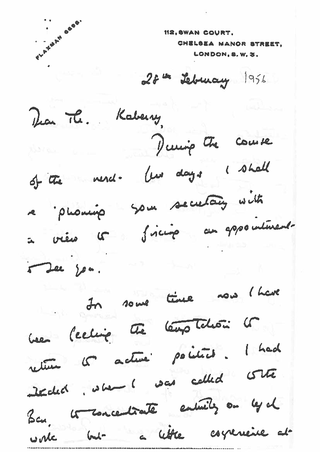 FLAXMAN 0280.
112, SWAN COURT,
CHELSEA MANOR STREET,
LONDON, S.W.3.
28th February 1956
Dear Mr. Kaberry,
During the course
of the next few days I shall
be 'phoning your secretary with
a view to fixing an appointment
to see you.
In some time now I have
been feeling the temptation to
return to active politics. I had
intended, when I was called to the
Bar, to concentrate entirely on legal
work but a little experience at